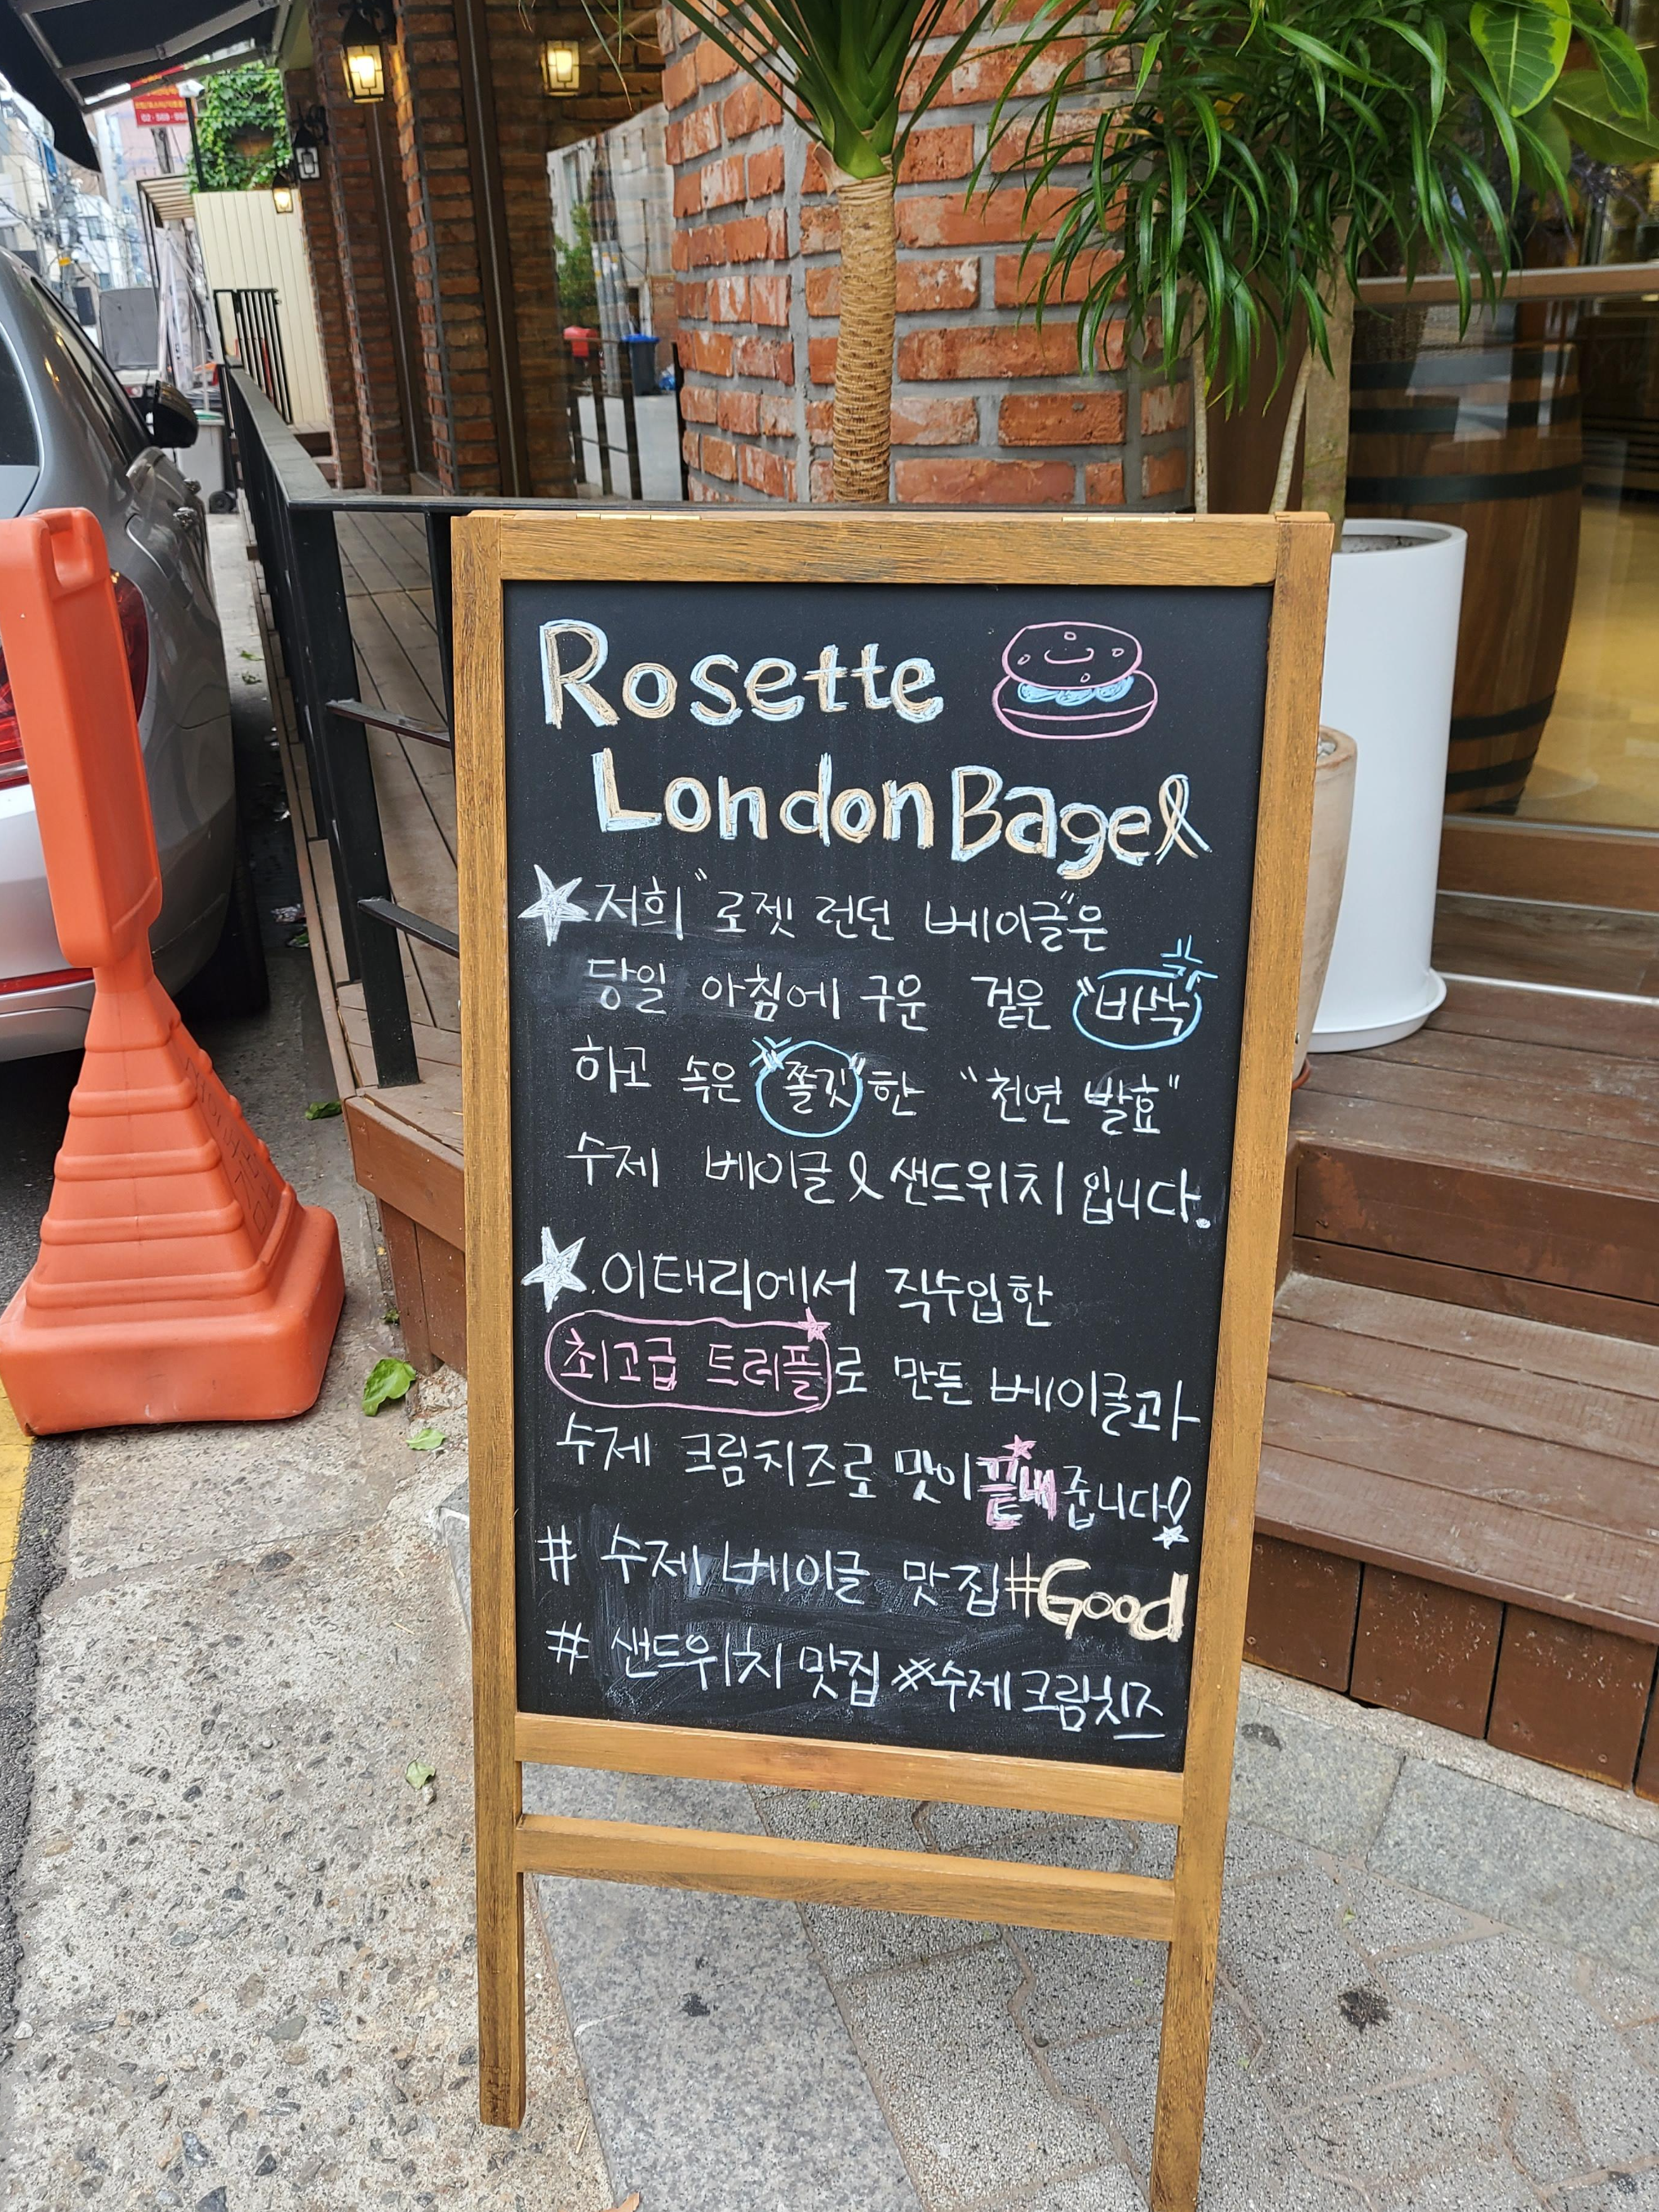 Rosette
London Bagel
저희 "로젯 런던 베이글"은
당일 아침에 구운 겉은 "바삭
하고 속은 "쫄깃"한 "천연 발효"
수제 베이글 & 샌드위치 입니다.
이태리에서 직수입한
최고급 트러플로 만든 베이글과
수제 크림치즈로 맛이 끝내줍니다!
# 수제 베이글 맛집 #Good
# 샌드위치 맛집 #수제 크림치즈